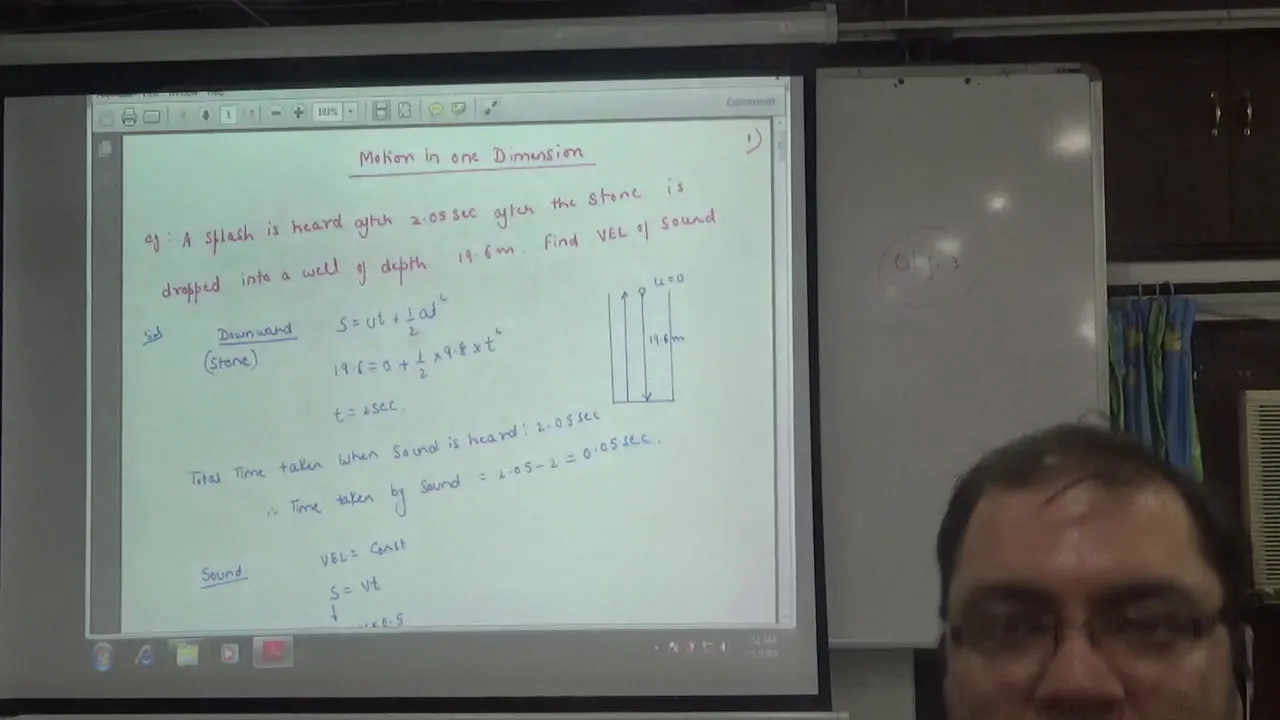 101%
Comment
Motion in one Dimension
1)
eg: A splash is heard after 2.05 sec after the stone is
dropped into a well of depth 19.6 m. Find VEL of sound
Sol
Downward
(Stone)
S = ut + 1/2 at²
19.6 = 0 + 1/2 × 9.8 × t²
t = 2 sec.
u = 0
19.6 m
Total Time taken when sound is heard: 2.05 sec
∴ Time taken by sound = 2.05 - 2 = 0.05 sec.
Sound
VEL = Const
S = Vt